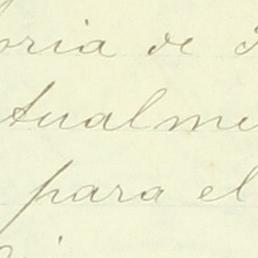 oria de
tualme
para el